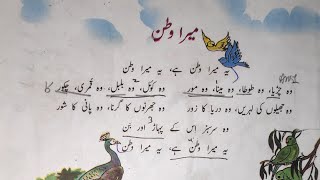 میرا وطن
یہ میرا وطن ہے، یہ میرا وطن
وہ چڑیا، وہ طوطا، وہ مینا، وہ مور
وہ کوئل، وہ بلبل، وہ قمری، چکور
وہ جھیلوں کی لہریں، وہ دریا کا زور
وہ جھرنوں کا گرنا، وہ پانی کا شور
وہ سرسبز اس کے پہاڑ اور بن
یہ میرا وطن ہے، یہ میرا وطن